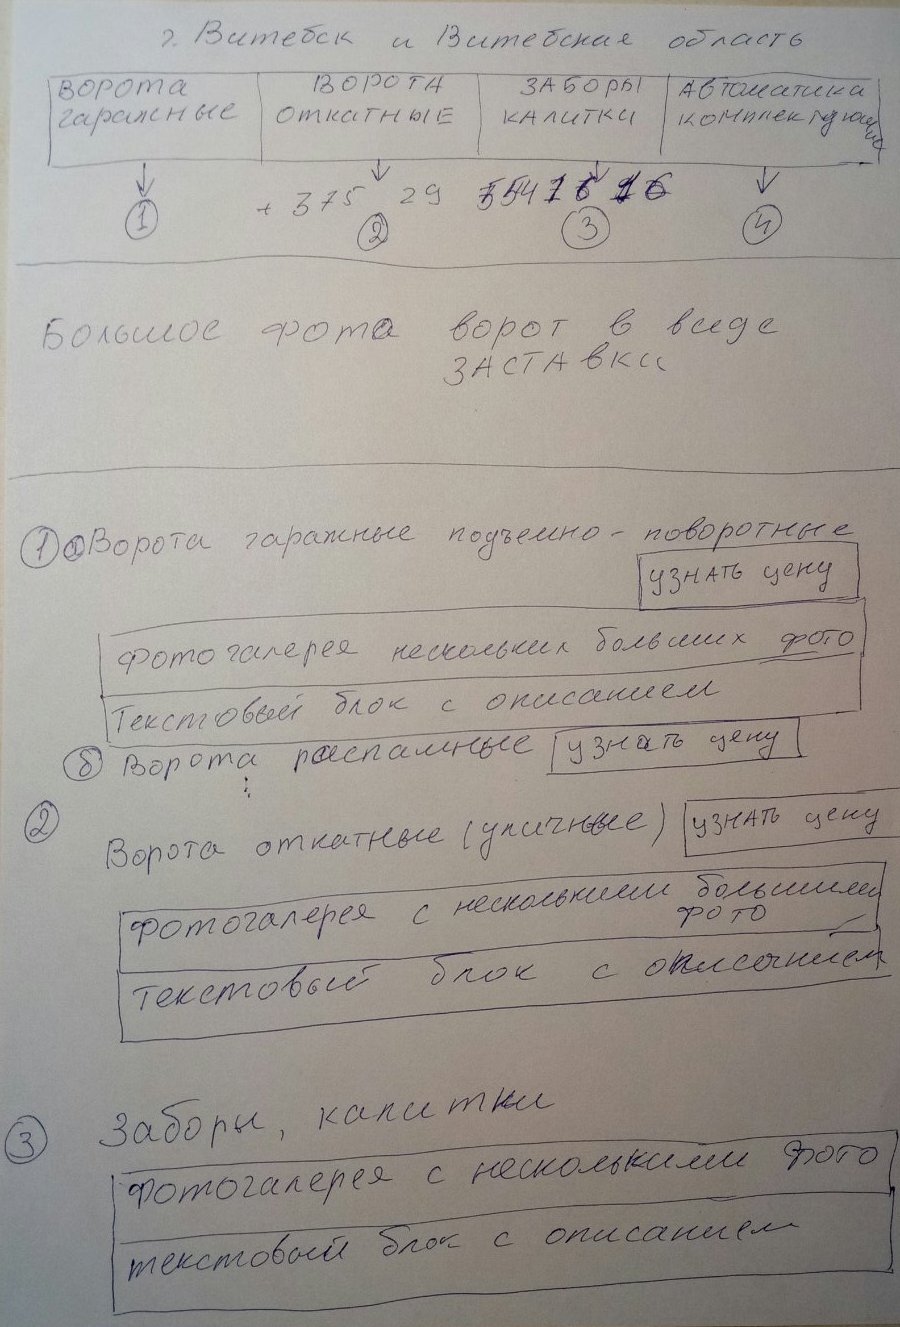 г. Витебск и Витебская область
ВОРОТА гаражные
ВОРОТА ОТКАТНЫЕ
ЗАБОРЫ КАЛИТКИ
АВТОМАТИКА КОМПЛЕКТУЮЩИЕ
+ 375 29
1
2
3
4
Большое фото ворот в виде
ЗАСТАВКИ
1 а Ворота гаражные подъемно-поворотные
УЗНАТЬ цену
Фотогалерея нескольких больших фото
Текстовый блок с описанием
б Ворота распашные узнать цену
2
Ворота откатные (уличные) УЗНАТЬ цену
Фотогалерея с несколькими большими
ФОТО
Текстовый блок с описанием
3 Заборы, калитки
Фотогалерея с несколькими ФОТО
текстовый блок с описанием